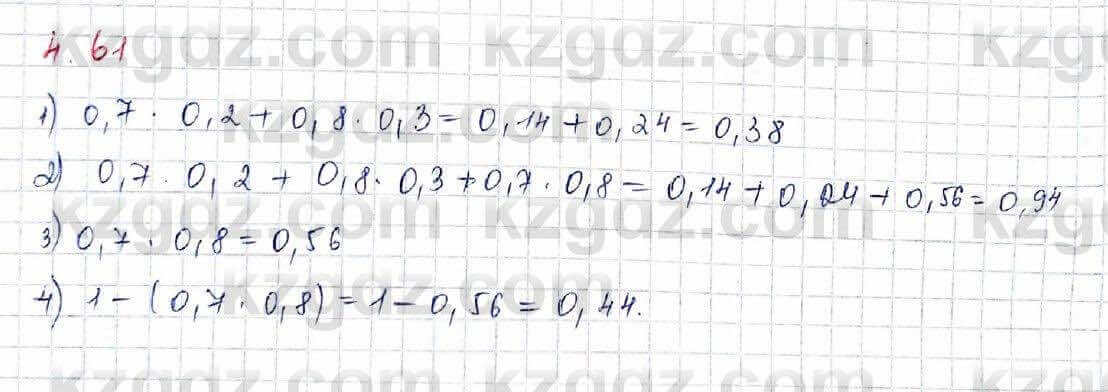 kzgdz.com kzgdz.com kzgdz.com
4.61
1) 0,7 · 0,2 + 0,8 · 0,3 = 0,14 + 0,24 = 0,38
2) 0,7 · 0,2 + 0,8 · 0,3 + 0,7 · 0,8 = 0,14 + 0,24 + 0,56 = 0,94
3) 0,7 · 0,8 = 0,56
4) 1 - (0,7 · 0,8) = 1 - 0,56 = 0,44.